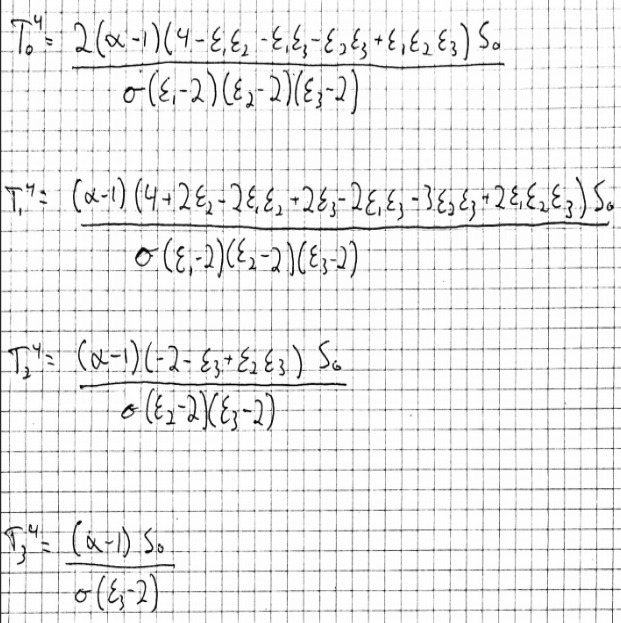 T₀⁴ = 2(α-1)(4-ε₁ε₂-ε₁ε₃-ε₂ε₃+ε₁ε₂ε₃) S₀
σ(ε₁-2)(ε₂-2)(ε₃-2)
T₁⁴ = (α-1)(4+2ε₂-2ε₁ε₂+2ε₃-2ε₁ε₃-3ε₂ε₃+2ε₁ε₂ε₃) S₀
σ(ε₁-2)(ε₂-2)(ε₃-2)
T₂⁴ = (α-1)(-2-ε₃+ε₂ε₃) S₀
σ(ε₂-2)(ε₃-2)
T₃⁴ = (α-1) S₀
σ(ε₃-2)